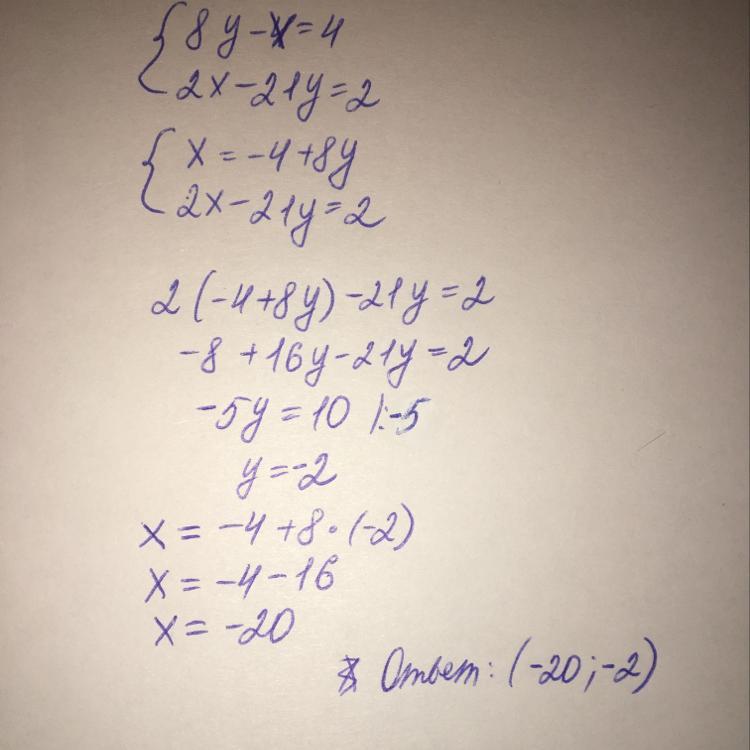 { 8y-x=4
2x-21y=2
{ x=-4+8y
2x-21y=2
2(-4+8y)-21y=2
-8+16y-21y=2
-5y=10 |:-5
y=-2
x=-4+8·(-2)
x=-4-16
x=-20
Ответ: (-20;-2)